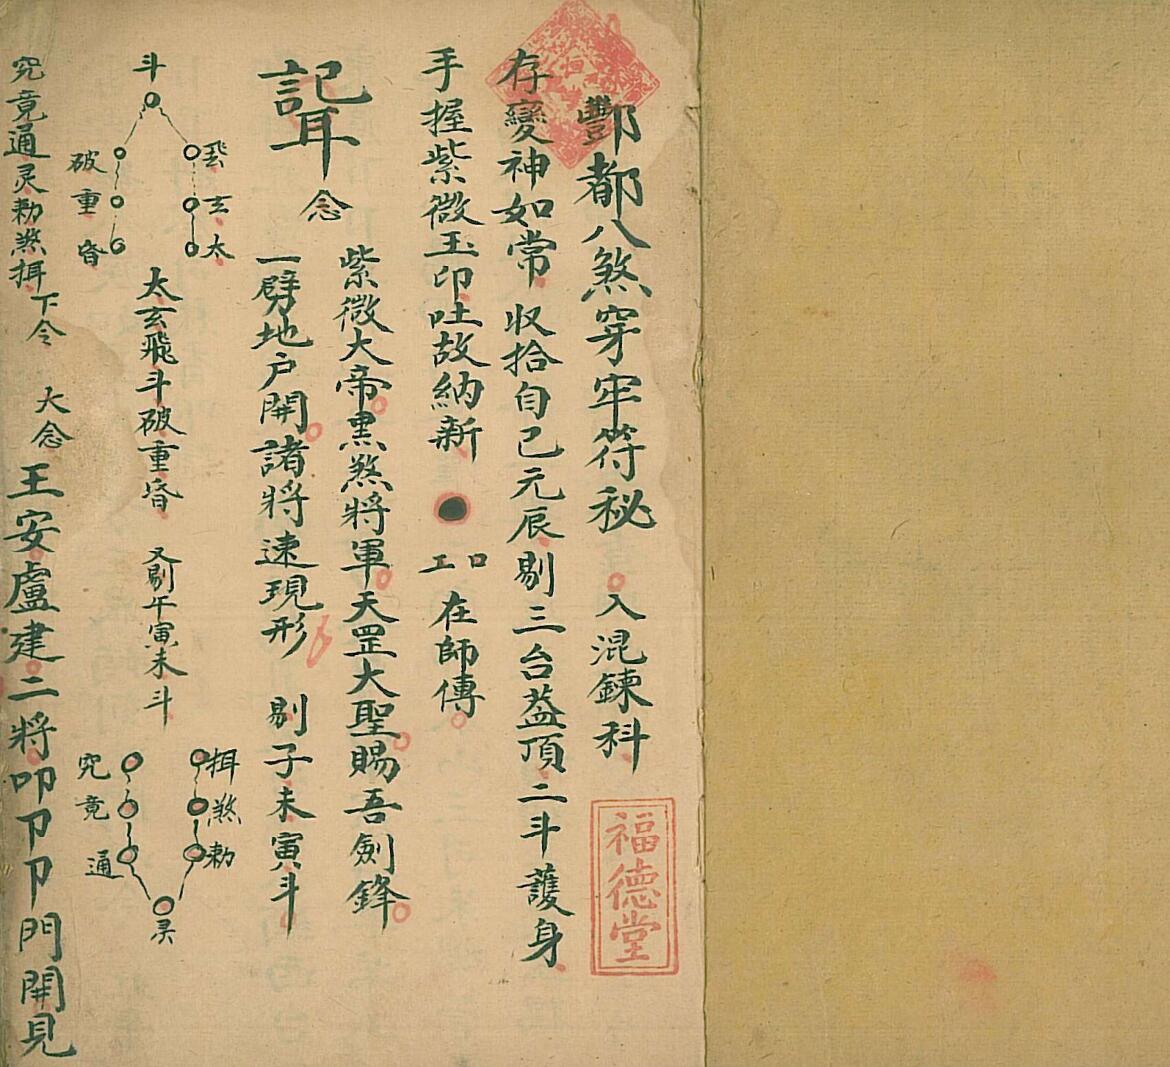 酆都八煞穿牢符秘 入混鍊科
福德堂
存變神如常收拾自己元辰剔三台蓋頂二斗護身
手握紫微玉印吐故納新 工口在師傳
念
紫微大帝黑煞將軍天罡大聖賜吾劍鋒
一劈地户開諸將速現形 剔子未寅斗
飛玄太
斗
破重昏
太玄飛斗破重昏 又剔午寅未斗
揖煞勅
灵
究竟通
究竟通灵勅煞揖下令 大念
王安盧建二將叩卩卩門開見